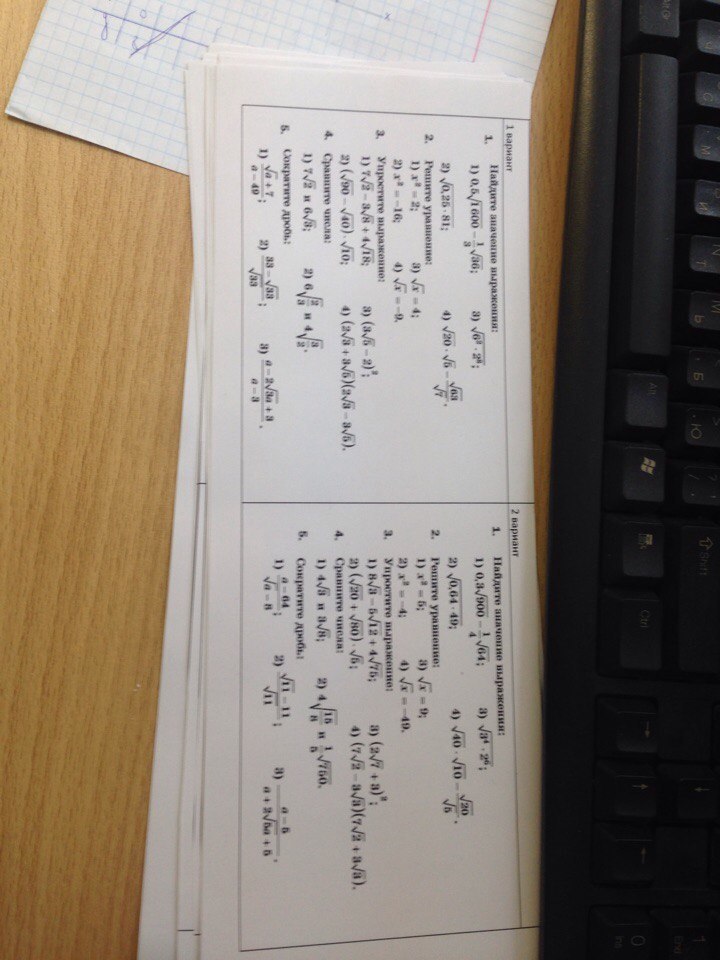 1 вариант
1. Найдите значение выражения:
1) 0,5√1600 − 1/3 √36; 3) √(6² · 2⁸);
2) √(0,25 · 81); 4) √20 · √5 − √63/√7.
2. Решите уравнение:
1) x² = 2; 3) √x = 4;
2) x² = −16; 4) √x = −9.
3. Упростите выражение:
1) 7√2 − 3√8 + 4√18; 3) (3√5 − 2)²;
2) (√90 − √40) · √10; 4) (2√3 + 3√5)(2√3 − 3√5).
4. Сравните числа:
1) 7√2 и 6√3; 2) 6√(2/3) и 4√(3/2).
5. Сократите дробь:
1) (√a + 7)/(a − 49); 2) (33 − √33)/√33; 3) (a − 2√3a + 3)/(a − 3).
2 вариант
1. Найдите значение выражения:
1) 0,3√900 − 1/4 √64; 3) √(3⁴ · 2⁶);
2) √(0,64 · 49); 4) √40 · √10 − √20/√5.
2. Решите уравнение:
1) x² = 5; 3) √x = 9;
2) x² = −4; 4) √x = −49.
3. Упростите выражение:
1) 8√3 − 5√12 + 4√75; 3) (2√7 + 3)²;
2) (√20 + √80) · √5; 4) (7√2 − 3√3)(7√2 + 3√3).
4. Сравните числа:
1) 4√3 и 3√8; 2) 4√(15/8) и 1/5 √750.
5. Сократите дробь:
1) (a − 64)/(√a − 8); 2) (√11 − 11)/√11; 3) (a − 5)/(a + 2√5a + 5).
Alt
Ctrl
Shift
End
1
0
Ins